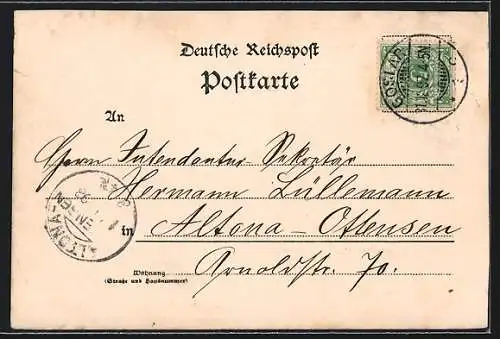 Deutsche Reichspost
Postkarte
GOSLAR
An
Herrn Intendantur Sekretär
Hermann Lüllemann
in Altona-Ottensen
Arnoldstr. 70.
Wohnung
(Straße und Hausnummer)
ALTONA-